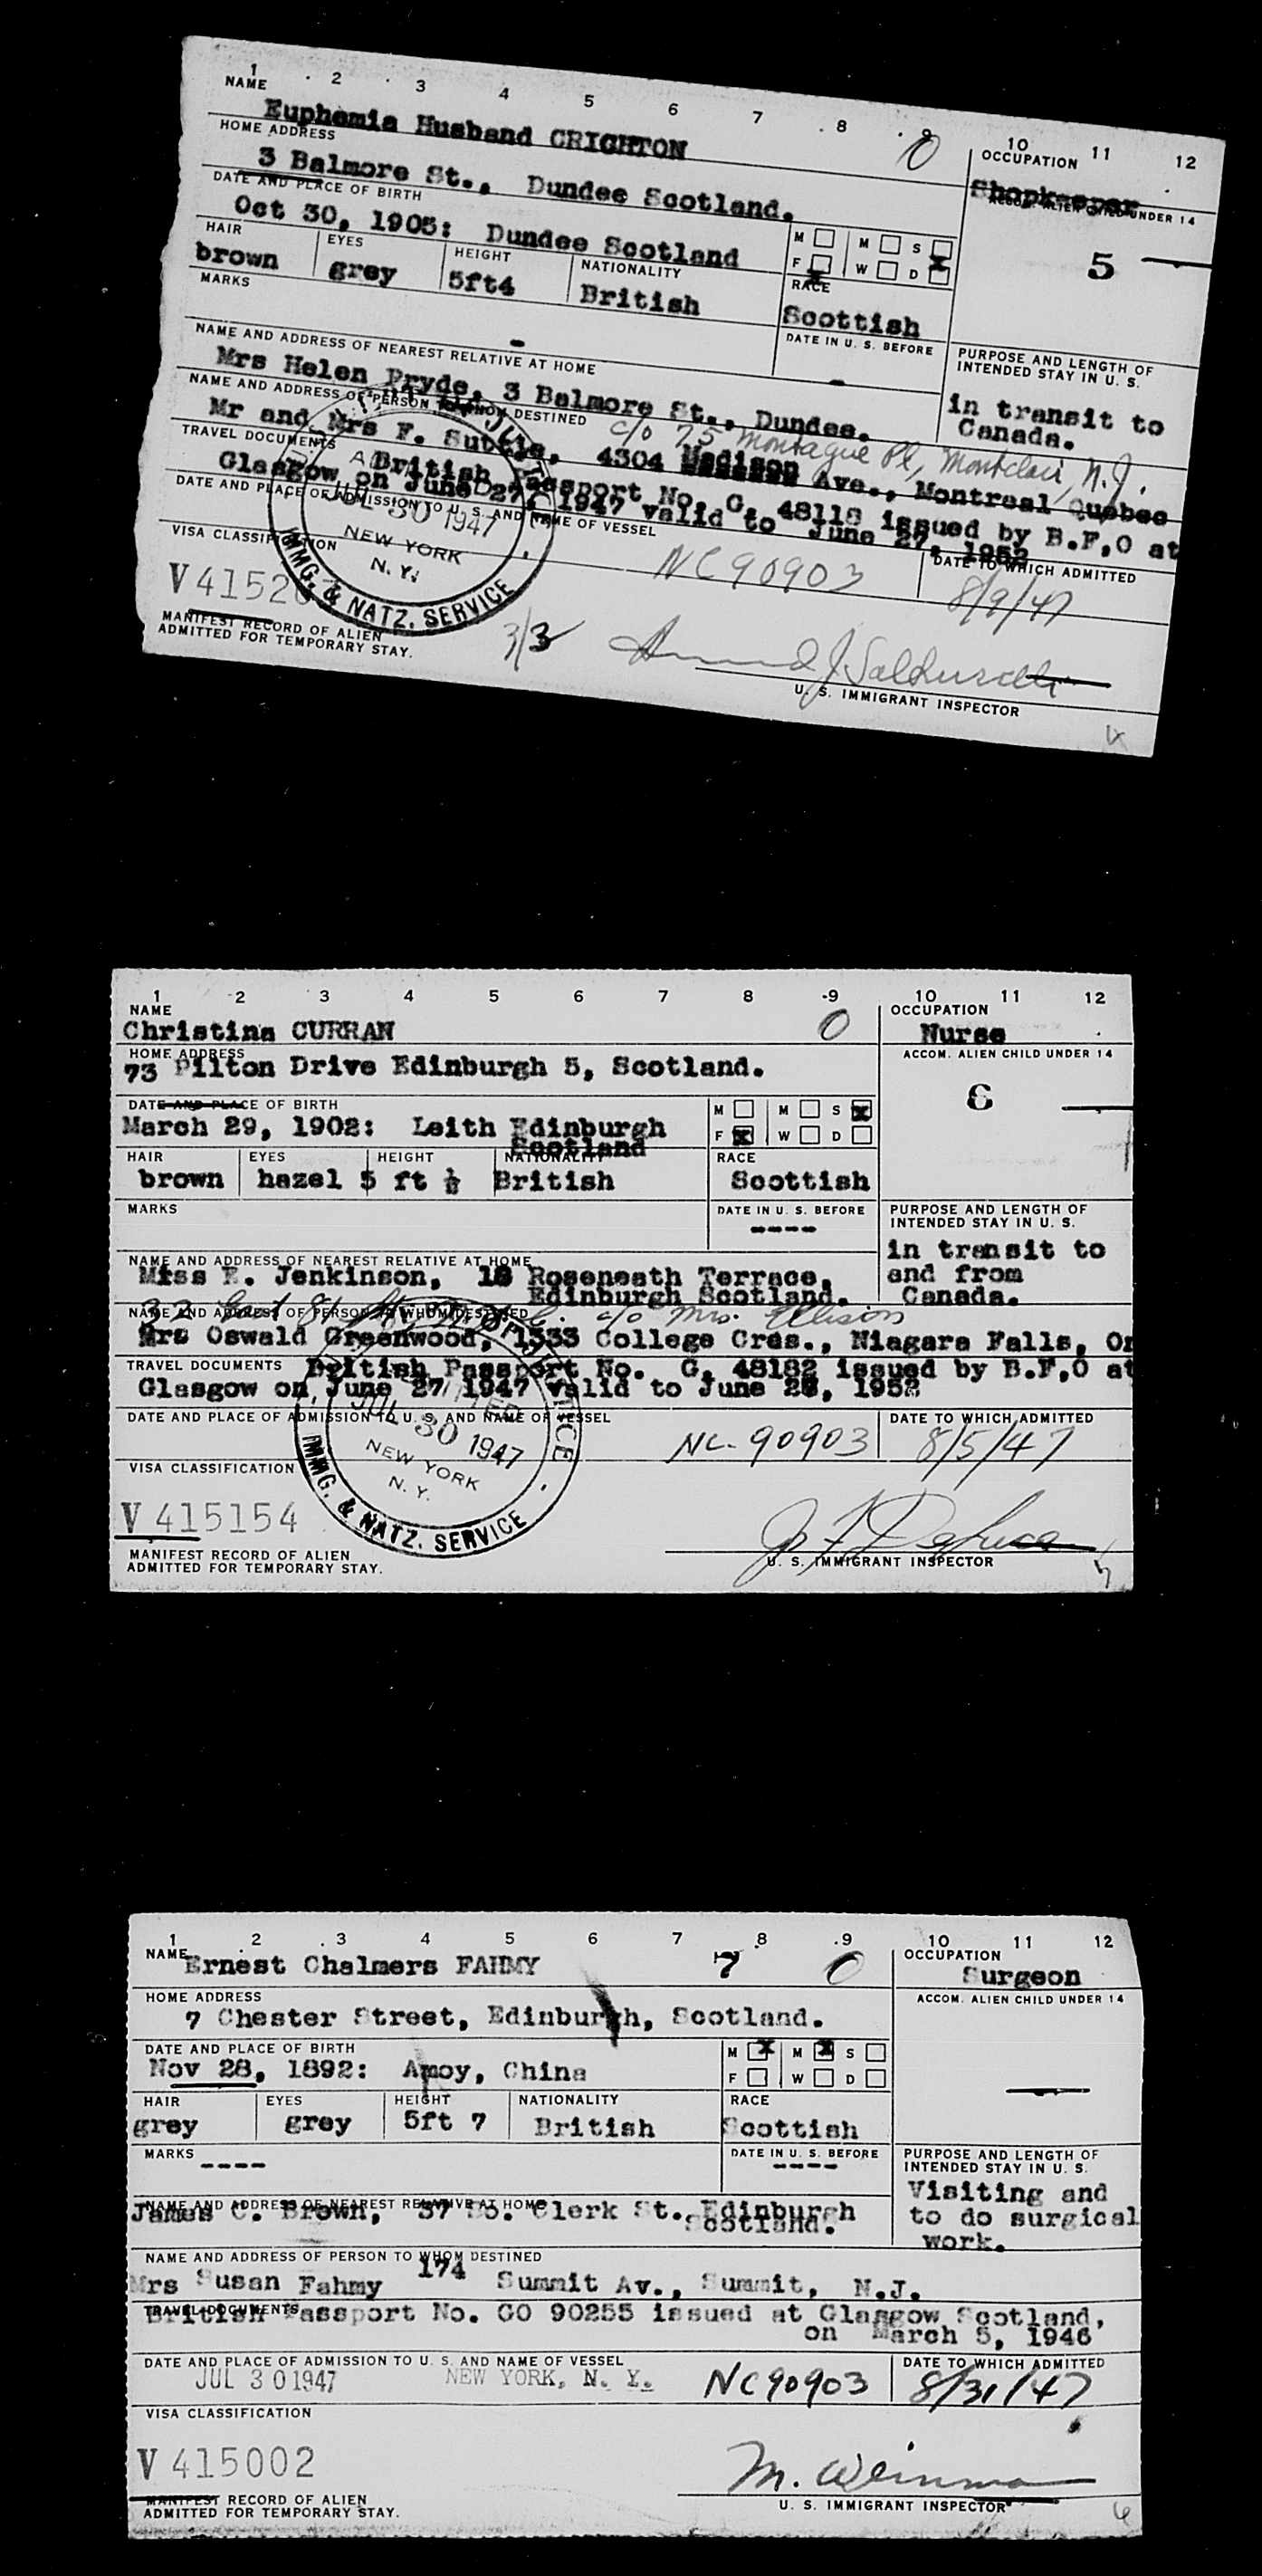 1 2 3 4 5 6 7 8 9 10 11 12
NAME
Euphemia Husband CRIGHTON
0
OCCUPATION
Shopkeeper
HOME ADDRESS
3 Balmore St., Dundee Scotland.
ACCOM. ALIEN CHILD UNDER 14
5
DATE AND PLACE OF BIRTH
Oct 30, 1905: Dundee Scotland
M M S
F W D
HAIR EYES HEIGHT NATIONALITY RACE
brown grey 5ft4 British Scottish
MARKS
-
DATE IN U. S. BEFORE
-
PURPOSE AND LENGTH OF
INTENDED STAY IN U. S.
in transit to
Canada.
NAME AND ADDRESS OF NEAREST RELATIVE AT HOME
Mrs Helen Pryde, 3 Balmore St., Dundee.
NAME AND ADDRESS OF PERSON TO WHOM DESTINED
c/o 75 Montague Pl, Montclair, N.J.
Mr and Mrs F. Suttie, 4304 Madison Ave., Montreal Quebec
TRAVEL DOCUMENTS
British Passport No. G. 48118 issued by B.F.O at
Glasgow on June 27, 1947 valid to June 27, 1952
DATE AND PLACE OF ADMISSION TO U. S. AND NAME OF VESSEL
JUL 30 1947
NEW YORK
N. Y.
IMMG. & NATZ. SERVICE
NC90903
DATE TO WHICH ADMITTED
8/9/47
VISA CLASSIFICATION
V4152
3/3
MANIFEST RECORD OF ALIEN
ADMITTED FOR TEMPORARY STAY.
U. S. IMMIGRANT INSPECTOR
1 2 3 4 5 6 7 8 9 10 11 12
NAME
Christina CURRAN
0
OCCUPATION
Nurse
HOME ADDRESS
73 Pilton Drive Edinburgh 5, Scotland.
ACCOM. ALIEN CHILD UNDER 14
6
DATE AND PLACE OF BIRTH
March 29, 1902: Leith Edinburgh
Scotland
M M S
F W D
HAIR EYES HEIGHT NATIONALITY RACE
brown hazel 5 ft ½ British Scottish
MARKS
DATE IN U. S. BEFORE
----
PURPOSE AND LENGTH OF
INTENDED STAY IN U. S.
in transit to
and from
Canada.
NAME AND ADDRESS OF NEAREST RELATIVE AT HOME
Miss E. Jenkinson, 18 Roseneath Terrace,
Edinburgh Scotland.
NAME AND ADDRESS OF PERSON TO WHOM DESTINED
32 East 81 St. N.Y.C. c/o Mrs. Ellison
Mrs Oswald Greenwood, 1333 College Cres., Niagara Falls, On
TRAVEL DOCUMENTS
British Passport No. G. 48182 issued by B.F.O at
Glasgow on June 27 1947 valid to June 26, 1952
DATE AND PLACE OF ADMISSION TO U. S. AND NAME OF VESSEL
ADMITTED
JUL 30 1947
NEW YORK
N. Y.
IMMG. & NATZ. SERVICE
NC-90903
DATE TO WHICH ADMITTED
8/5/47
VISA CLASSIFICATION
V 415154
MANIFEST RECORD OF ALIEN
ADMITTED FOR TEMPORARY STAY.
U. S. IMMIGRANT INSPECTOR
1 2 3 4 5 6 7 8 9 10 11 12
NAME
Ernest Chalmers FAHMY
7 0
OCCUPATION
Surgeon
HOME ADDRESS
7 Chester Street, Edinburgh, Scotland.
ACCOM. ALIEN CHILD UNDER 14
DATE AND PLACE OF BIRTH
Nov 28, 1892: Amoy, China
M M S
F W D
HAIR EYES HEIGHT NATIONALITY RACE
grey grey 5ft 7 British Scottish
MARKS
----
DATE IN U. S. BEFORE
----
PURPOSE AND LENGTH OF
INTENDED STAY IN U. S.
Visiting and
to do surgical
work.
NAME AND ADDRESS OF NEAREST RELATIVE AT HOME
James C. Brown, 37 So. Clerk St., Edinburgh
Scotland.
NAME AND ADDRESS OF PERSON TO WHOM DESTINED
Mrs Susan Fahmy 174 Summit Av., Summit, N.J.
TRAVEL DOCUMENTS
British Passport No. CO 90255 issued at Glasgow Scotland,
on March 5, 1946
DATE AND PLACE OF ADMISSION TO U. S. AND NAME OF VESSEL
JUL 30 1947 NEW YORK, N. Y. NC90903
DATE TO WHICH ADMITTED
8/31/47
VISA CLASSIFICATION
V 415002
M. Weinman
MANIFEST RECORD OF ALIEN
ADMITTED FOR TEMPORARY STAY.
U. S. IMMIGRANT INSPECTOR
6